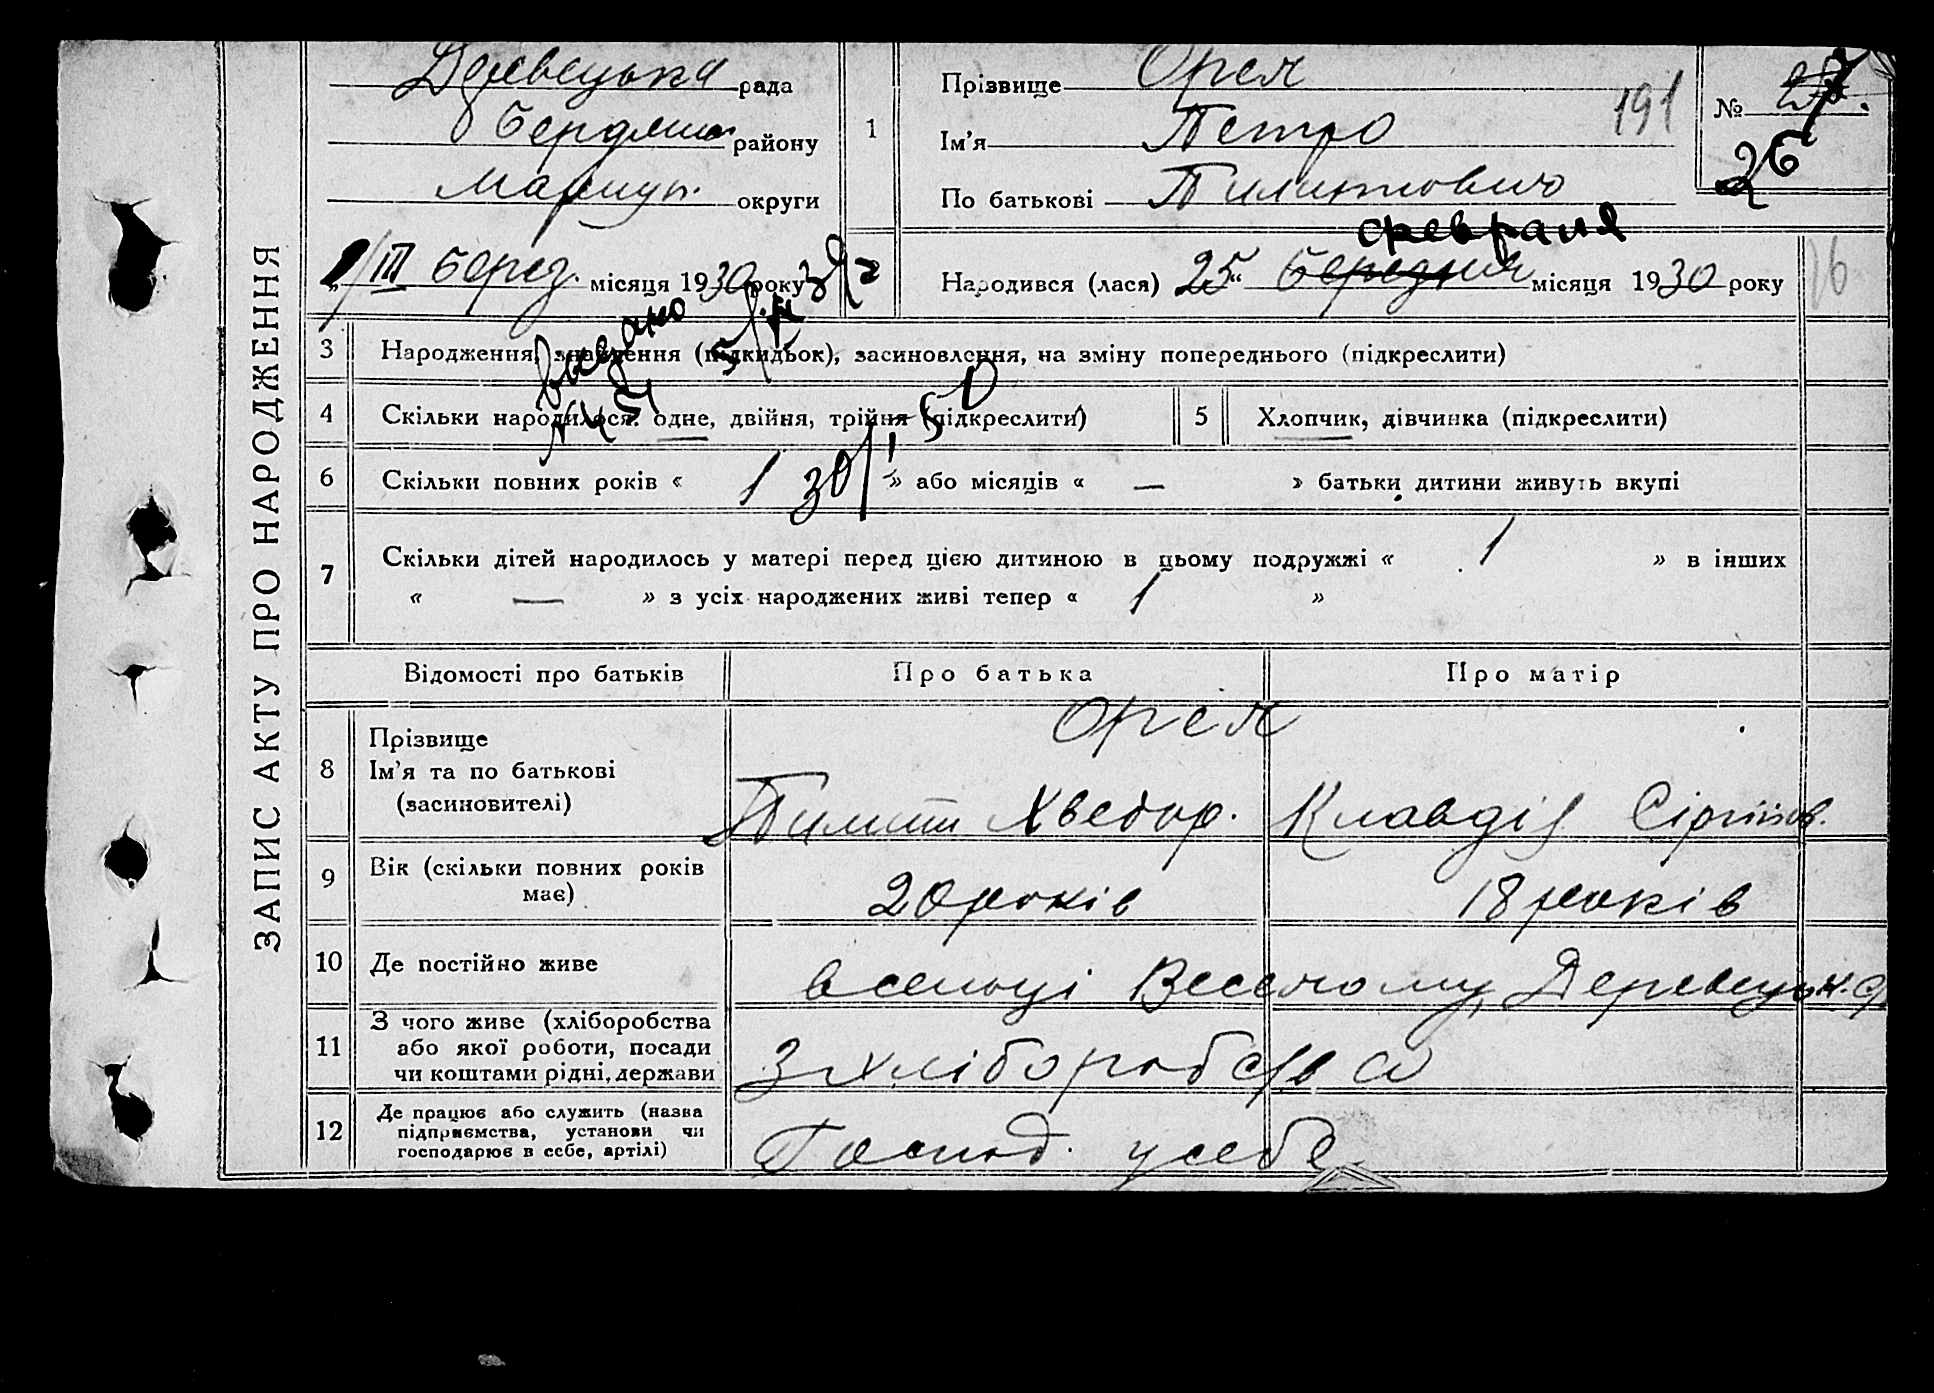 ЗАПИС АКТУ ПРО НАРОДЖЕННЯ
рада
Бердян. району
Маріуп. округи
1/III берез. місяця 1930 року
1
Прізвище Орел
Ім'я Петро
По батькові Пилипович
191
№ 27.
26
февраля
Народився (лася) 25 “ березня місяця 1930 року
16
3 Народження, знайдення (підкидьок), засиновлення, на зміну попереднього (підкреслити)
4 Скільки народилося: одне, двійня, трійня (підкреслити)
5 Хлопчик, дівчинка (підкреслити)
6 Скільки повних років « 1 » або місяців « — » батьки дитини живуть вкупі
7 Скільки дітей народилось у матері перед цією дитиною в цьому подружжі « 1 » в інших
« — » з усіх народжених живі тепер « 1 »
Відомості про батьків Про батька Про матір
Орел
8 Прізвище
Ім'я та по батькові
(засиновителі)
Пилип Хведор. Клавдія Сіргіїов.
9 Вік (скільки повних років
має)
20 років 18 років
10 Де постійно живе
в селищі Веселому,
11 З чого живе (хліборобства
або якої роботи, посади
чи коштами рідні, держави
З хліборобства
12 Де працює або служить (назва
підприємства, установи чи
господарює в себе, артілі)
Господ. у себе